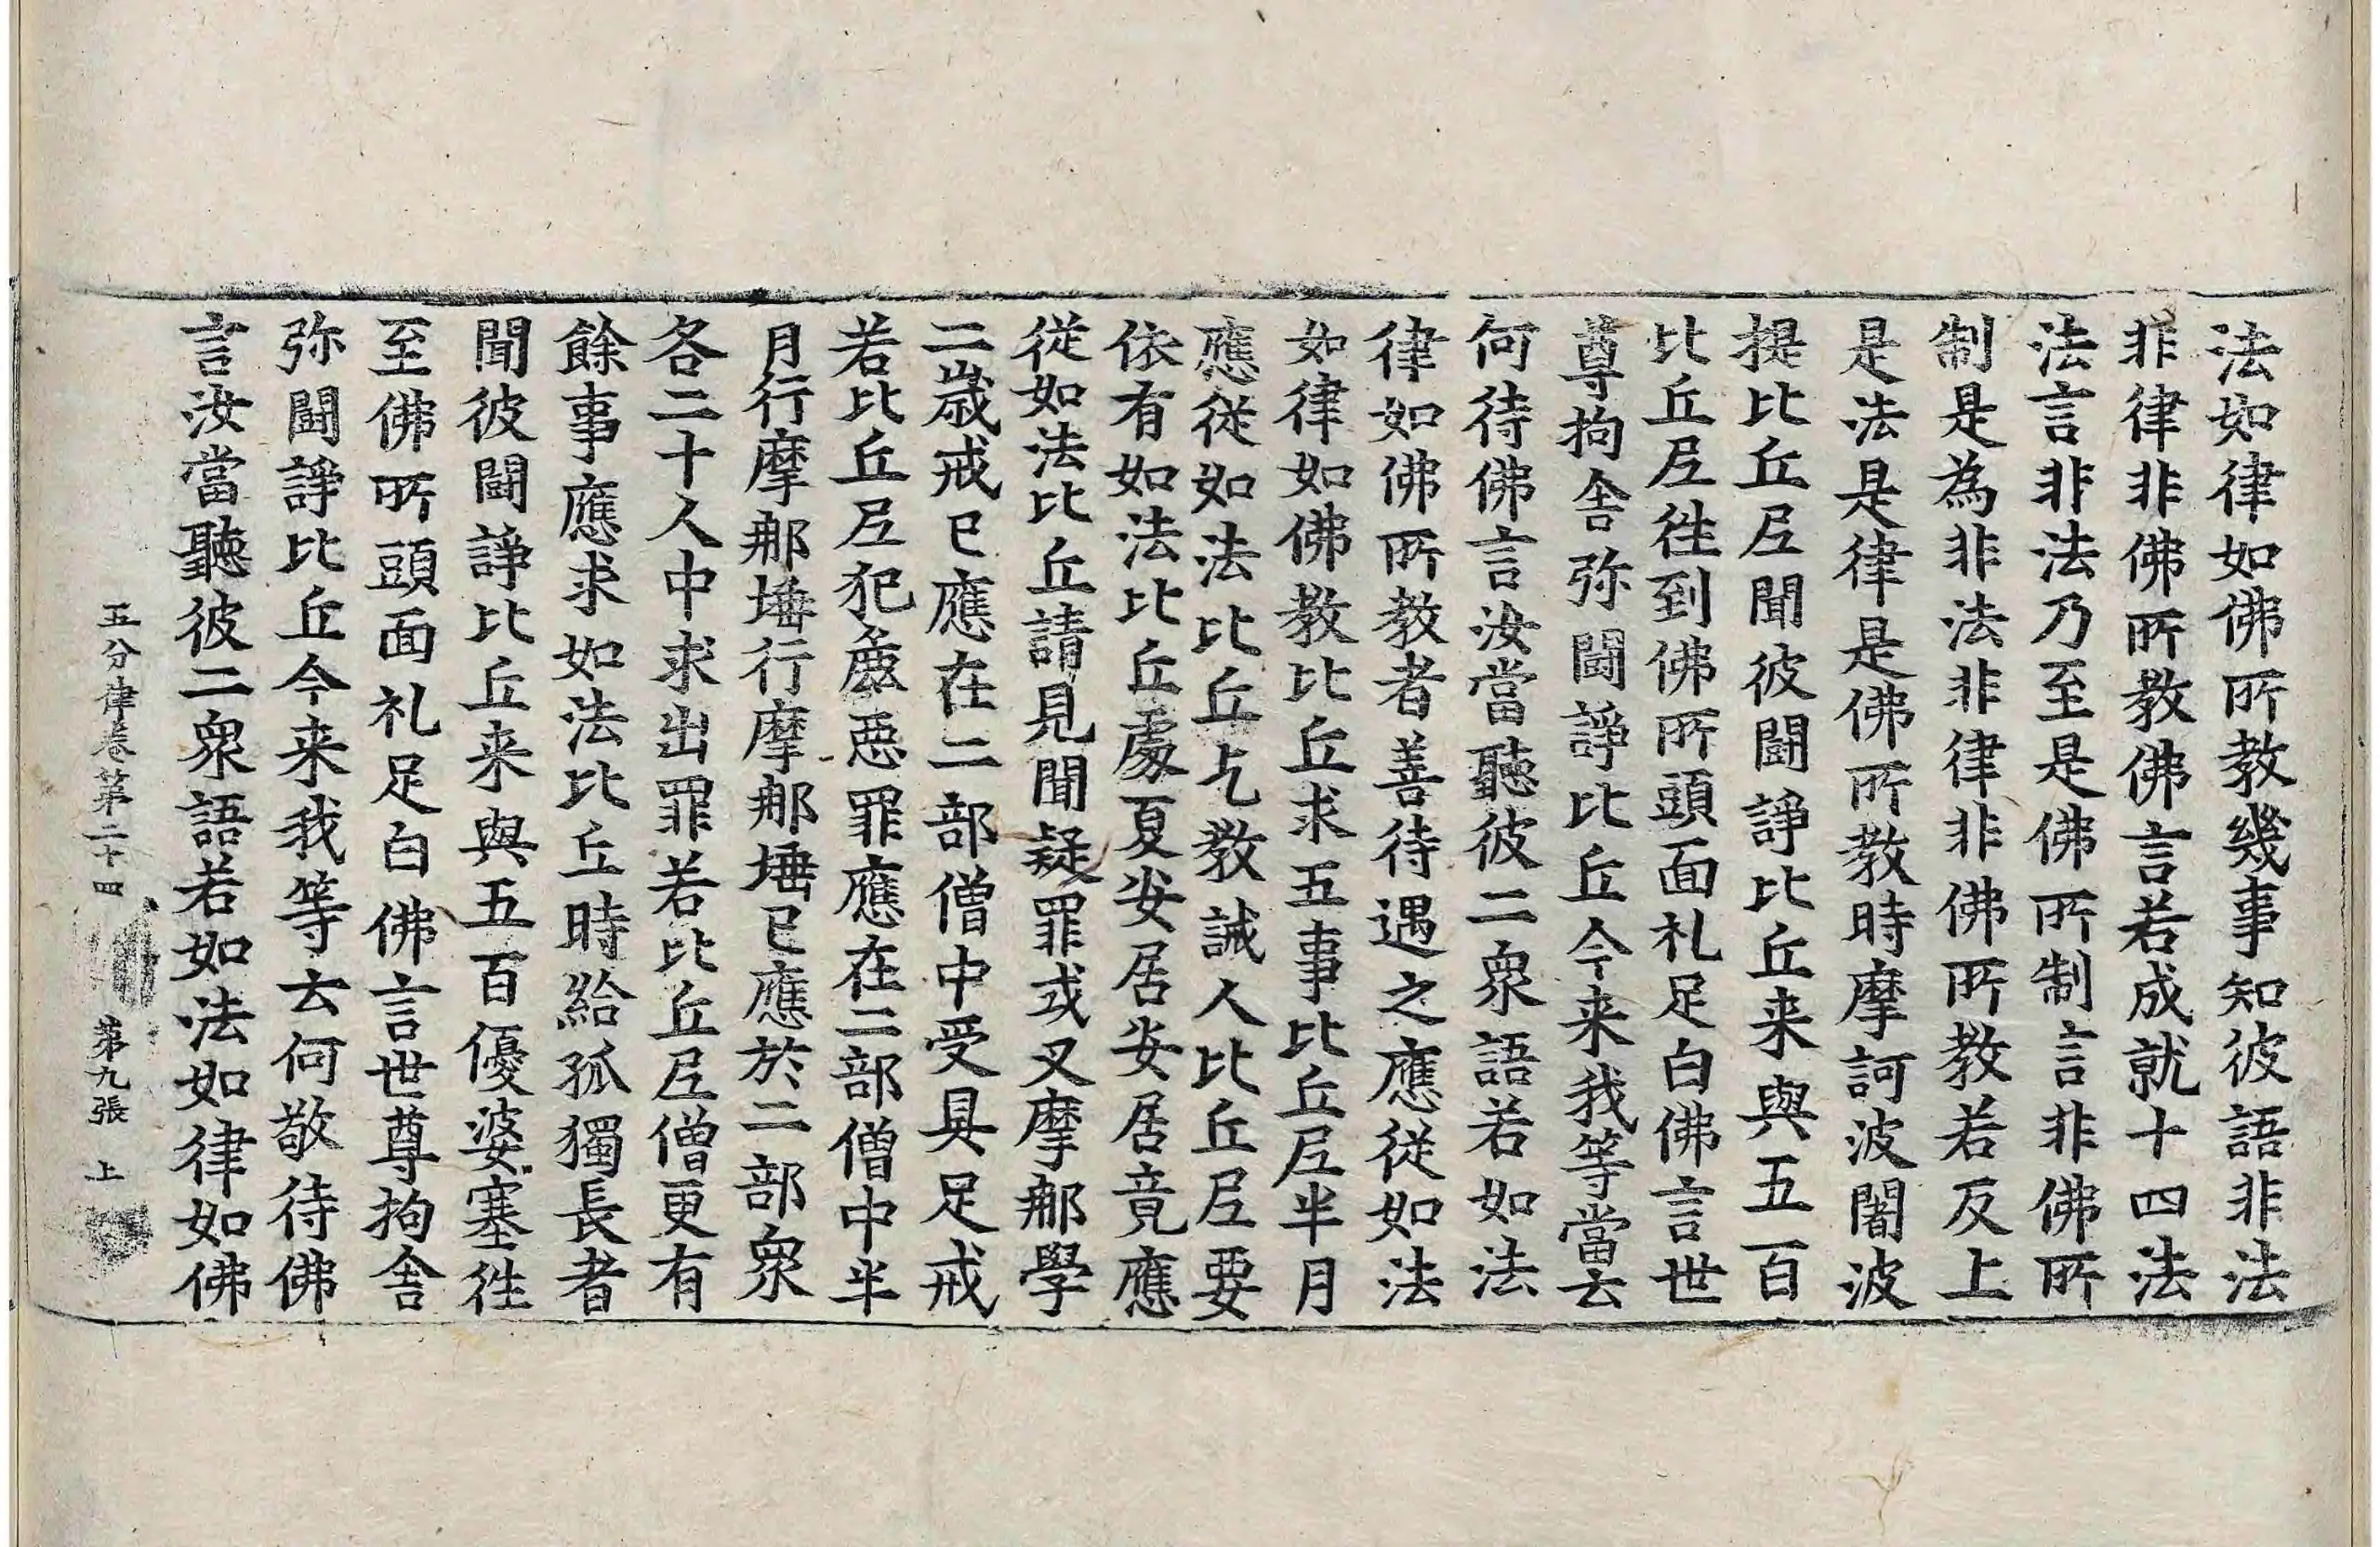 法如律如佛所教幾事知彼語非法
非律非佛所教佛言若成就十四法
法言非法乃至是佛所制言非佛所
制是為非法非律非佛所教若反上
是法是律是佛所教時摩訶波闍波
提比丘尼聞彼鬪諍比丘来與五百
比丘尼徃到佛所頭面礼足白佛言世
尊拘舍弥鬪諍比丘今来我等當云
何待佛言汝當聽彼二衆語若如法
律如佛所教者善待遇之應從如法
如律如佛教比丘求五事比丘尼半月
應從如法比丘乞教誡人比丘尼要
依有如法比丘處夏安居安居竟應
從如法比丘請見聞疑罪或叉摩那學
二歲戒已應在二部僧中受具足戒
若比丘尼犯麁惡罪應在二部僧中半
月行摩那埵行摩那埵已應於二部衆
各二十人中求出罪若比丘尼僧更有
餘事應求如法比丘時給孤獨長者
聞彼鬪諍比丘来與五百優婆塞徃
至佛所頭面礼足白佛言世尊拘舍
弥鬪諍比丘今来我等云何敬待佛
言汝當聽彼二衆語若如法如律如佛
五分律卷第二十四 第九張 上